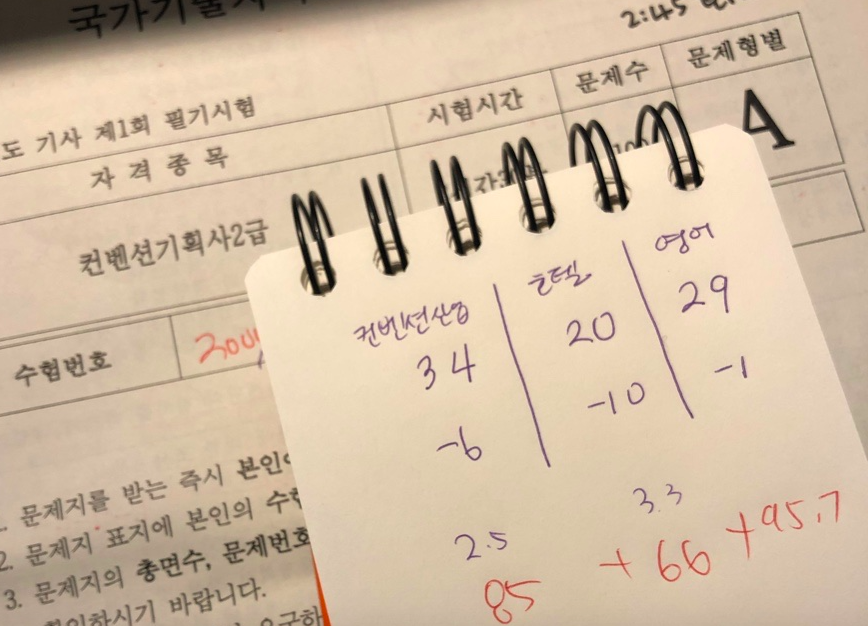 국가기술자
2:45
도 기사 제1회 필기시험
시험시간
문제수
문제형별
자 격 종 목
A
컨벤션기획사2급
수험번호
컨벤션산업 호텔 영어
34 20 29
-6 -10 -1
2.5 3.3
85 + 66 + 95.7
1. 문제지를 받는 즉시 본인
2. 문제지 표지에 본인의 수험
3. 문제지의 총면수, 문제번호
확인하시기 바랍니다.